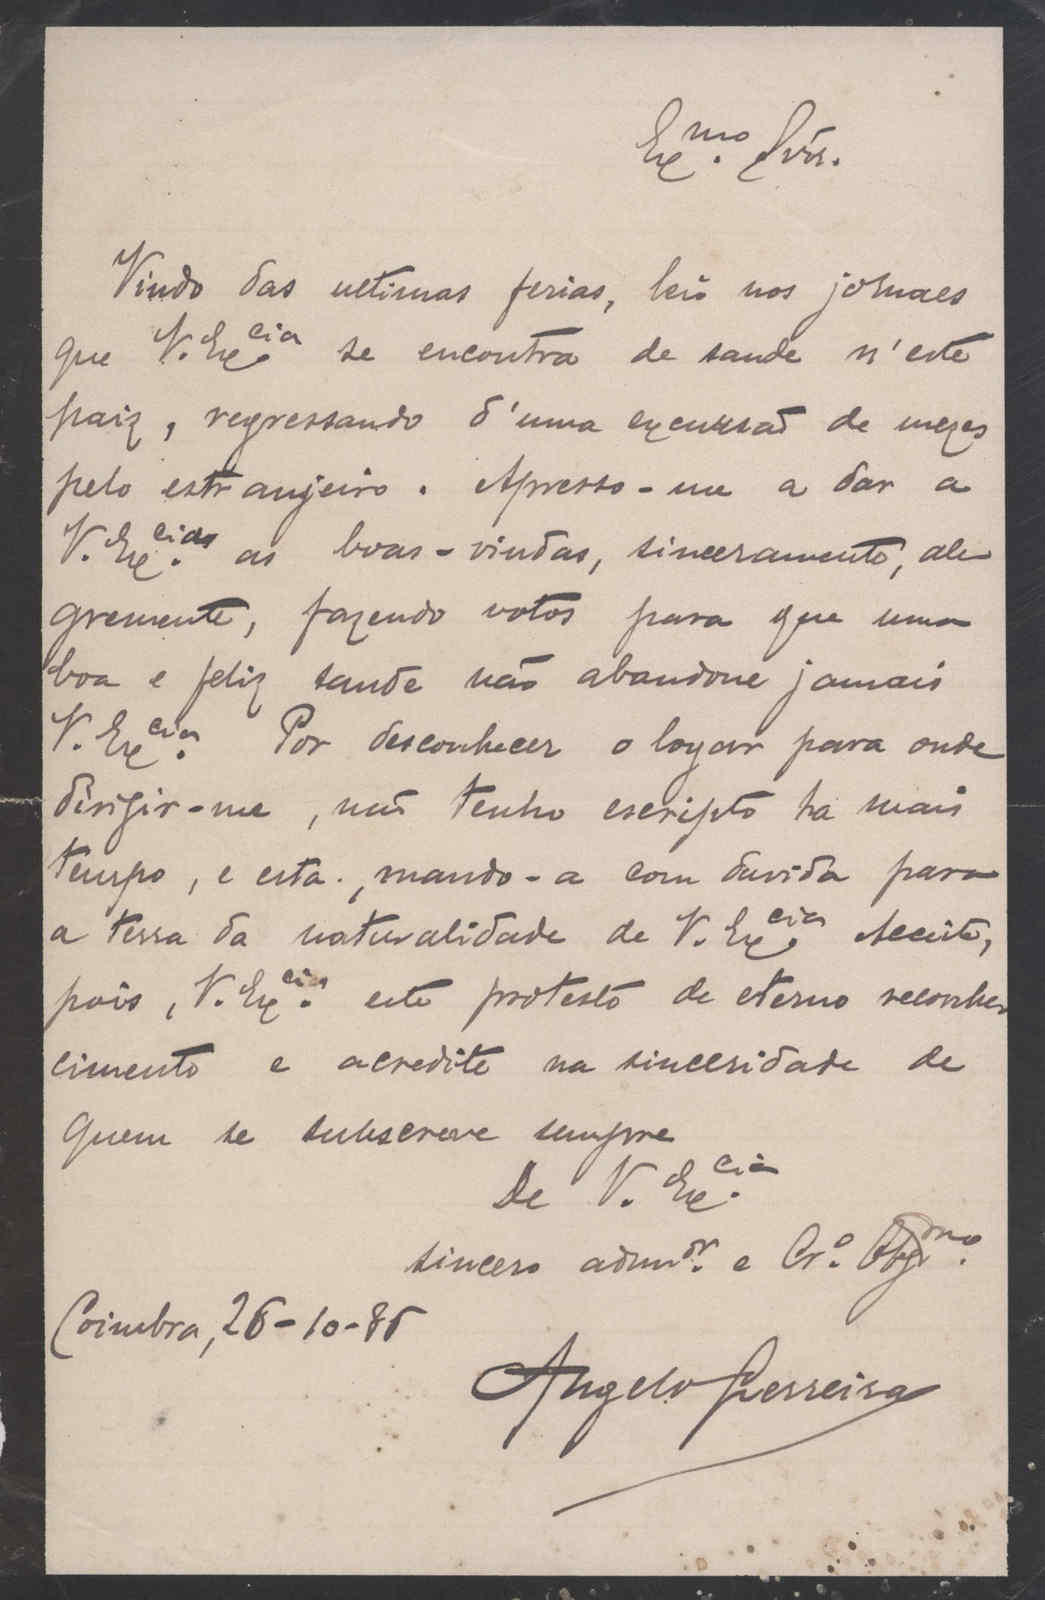 Ex.mo Snr.
Vindo das ultimas ferias, leio nos jornaes
que V. Ex.cia se encontra de saude n'este
paiz, regressando d'uma excursaõ de mezes
pelo estranjeiro. Apresso-me a dar a
V. Ex.cias as boas-vindas, sinceramente, ale
gremente, fazendo votos para que uma
boa e feliz saude não abandone jamais
V. Ex.cia. Por desconhecer o logar para onde
dirigir-me, não tenho escripto ha mais
tempo, e esta, mando-a com duvida para
a terra da naturalidade de V. Ex.cia. Acceite,
pois, V. Ex.cia este protesto de eterno reconhe
cimento e acredite na sinceridade de
quem se subscreve sempre
De V. Ex.cia
sincero adm.dr e Cr.o Obg.mo
Coimbra, 26-10-86
Angelo Ferreira